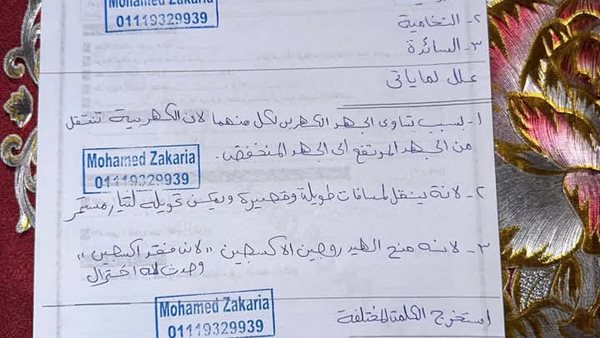 Mohamed Zakaria
01119329939
٢- النخامية
٣- السائدة
علل لما ياتى
١- لسبب تساوى الجهد الكهربى لكل منهما لان الكهربية تنتقل
من الجهد المرتفع الى الجهد المنخفض.
Mohamed Zakaria
01119329939
٢- لانة ينقل لمسافات طويلة وقصيرة ويمكن تحويله لتيار مستمر
٣- لانه منح الهيدروجين الاكسجين "لانه فقد اكسجين"،
وحدث له اختزال
Mohamed Zakaria
01119329939
استخرج الكلمة المختلفة